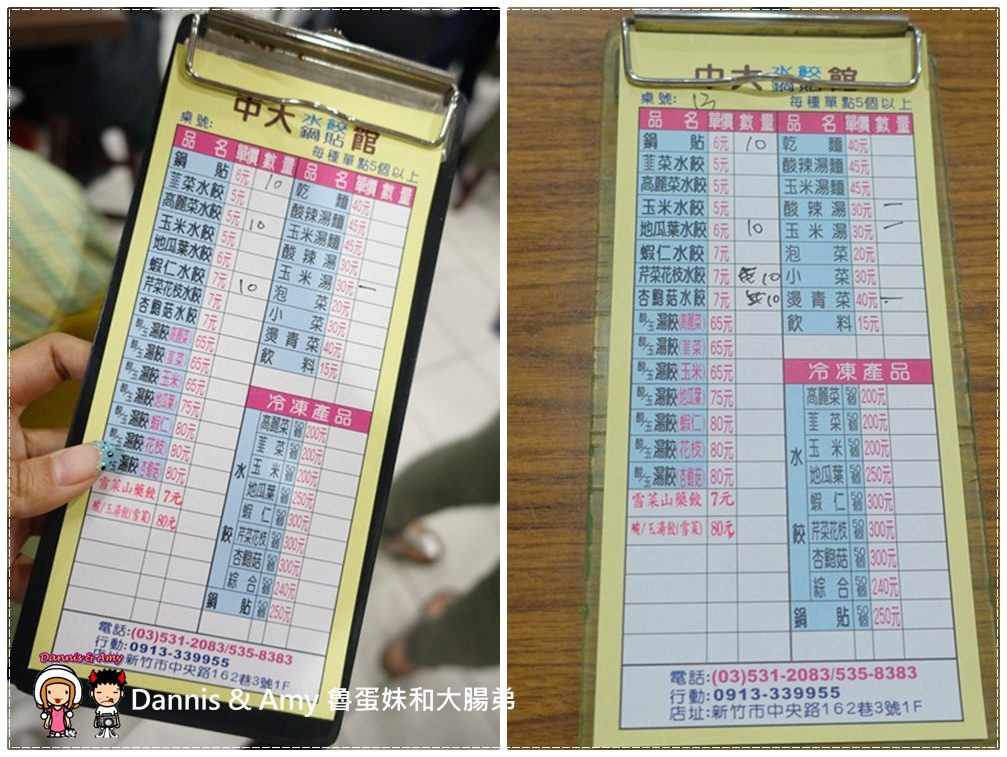 中大水餃鍋貼館
桌號:
每種單點5個以上
品名 單價 數量 品名 單價 數量
鍋貼 6元 10 乾麵 40元
韮菜水餃 5元 酸辣湯麵 45元
高麗菜水餃 5元 玉米湯麵 45元
玉米水餃 5元 10 酸辣湯 30元
地瓜葉水餃 6元 玉米湯 30元 一
蝦仁水餃 7元 10 泡菜 20元
芹菜花枝水餃 7元 小菜 30元
杏鮑菇水餃 7元 燙青菜 40元
酸/玉湯餃(高麗菜) 65元 飲料 15元
酸/玉湯餃(韮菜) 65元
酸/玉湯餃(玉米) 65元 冷凍產品
酸/玉湯餃(地瓜葉) 75元 高麗菜 50個 200元
酸/玉湯餃(蝦仁) 80元 韮菜 50個 200元
酸/玉湯餃(花枝) 80元 水餃 玉米 50個 200元
湯餃(杏鮑菇) 80元 地瓜葉 50個 250元
雪菜山藥餃 7元 蝦仁 50個 300元
酸/玉湯餃(雪菜) 80元 芹菜花枝 50個 300元
杏鮑菇 50個 300元
綜合 50個 240元
鍋貼 50個 250元
電話:(03)531-2083/535-8383
行動:0913-339955
新竹市中央路162巷3號1F
Dannis & Amy
Dannis & Amy 魯蛋妹和大腸弟
中大水餃鍋貼館
桌號: 13 每種單點5個以上
品名 單價 數量 品名 單價 數量
鍋貼 6元 10 乾麵 40元
韮菜水餃 5元 酸辣湯麵 45元
高麗菜水餃 5元 玉米湯麵 45元
玉米水餃 5元 酸辣湯 30元 一
地瓜葉水餃 6元 10 玉米湯 30元 一
蝦仁水餃 7元 泡菜 20元
芹菜花枝水餃 7元 10 小菜 30元
杏鮑菇水餃 7元 10 燙青菜 40元 一
酸/玉湯餃(高麗菜) 65元 飲料 15元
酸/玉湯餃(韮菜) 65元
酸/玉湯餃(玉米) 65元 冷凍產品
酸/玉湯餃(地瓜葉) 75元 高麗菜 50個 200元
酸/玉湯餃(蝦仁) 80元 韮菜 50個 200元
酸/玉湯餃(花枝) 80元 水餃 玉米 50個 200元
酸/玉湯餃(杏鮑菇) 80元 地瓜葉 50個 250元
雪菜山藥餃 7元 蝦仁 50個 300元
酸/玉湯餃(雪菜) 80元 芹菜花枝 50個 300元
杏鮑菇 50個 300元
綜合 50個 240元
鍋貼 50個 250元
電話:(03)531-2083/535-8383
行動:0913-339955
店址:新竹市中央路162巷3號1F